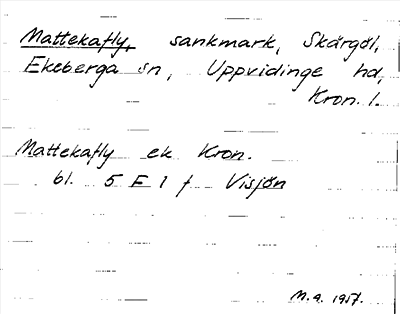 Mattekafly, sankmark, Skärgöl,
Ekeberga sn, Uppvidinge hd,
Kron. l.
Mattekafly ek Kron.
bl. 5 E 1 f Visjön
M.a. 1957.